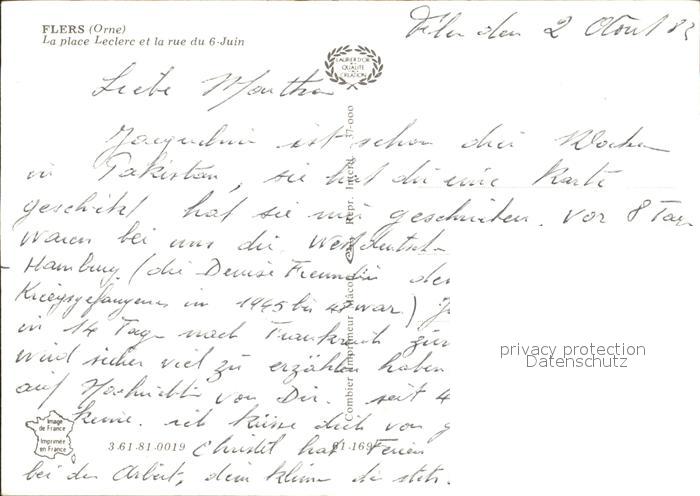 FLERS (Orne)
La place Leclerc et la rue du 6-Juin
den 2 Août 83
LAURIER D'OR
DE
QUALITÉ
CRÉATION
Liebe Martha
Jacqueline ist schon drei Wochen
in Pakistan, sie hat dir eine Karte
geschikt hat sie mir geschrieben. vor 8 Tagen
waren bei uns die Westdeutsch
Hamburg (die Denise Freundin der
Kriegsgefangenen in 1945 bis 48 war.)
in 14 Tage nach Frankreich zur
wird sicher viel zu erzählen haben
auf Nachricht von Dir. seit 4
keine. ich küsse dich von g
Christel hat Ferien
bei der Arbeit, dem
Combier Imprimeur Mâcon Repr. Interd. 37-000
Image
de France
Imprimée
en France
3.61.81.0019
81-169
privacy protection
Datenschutz